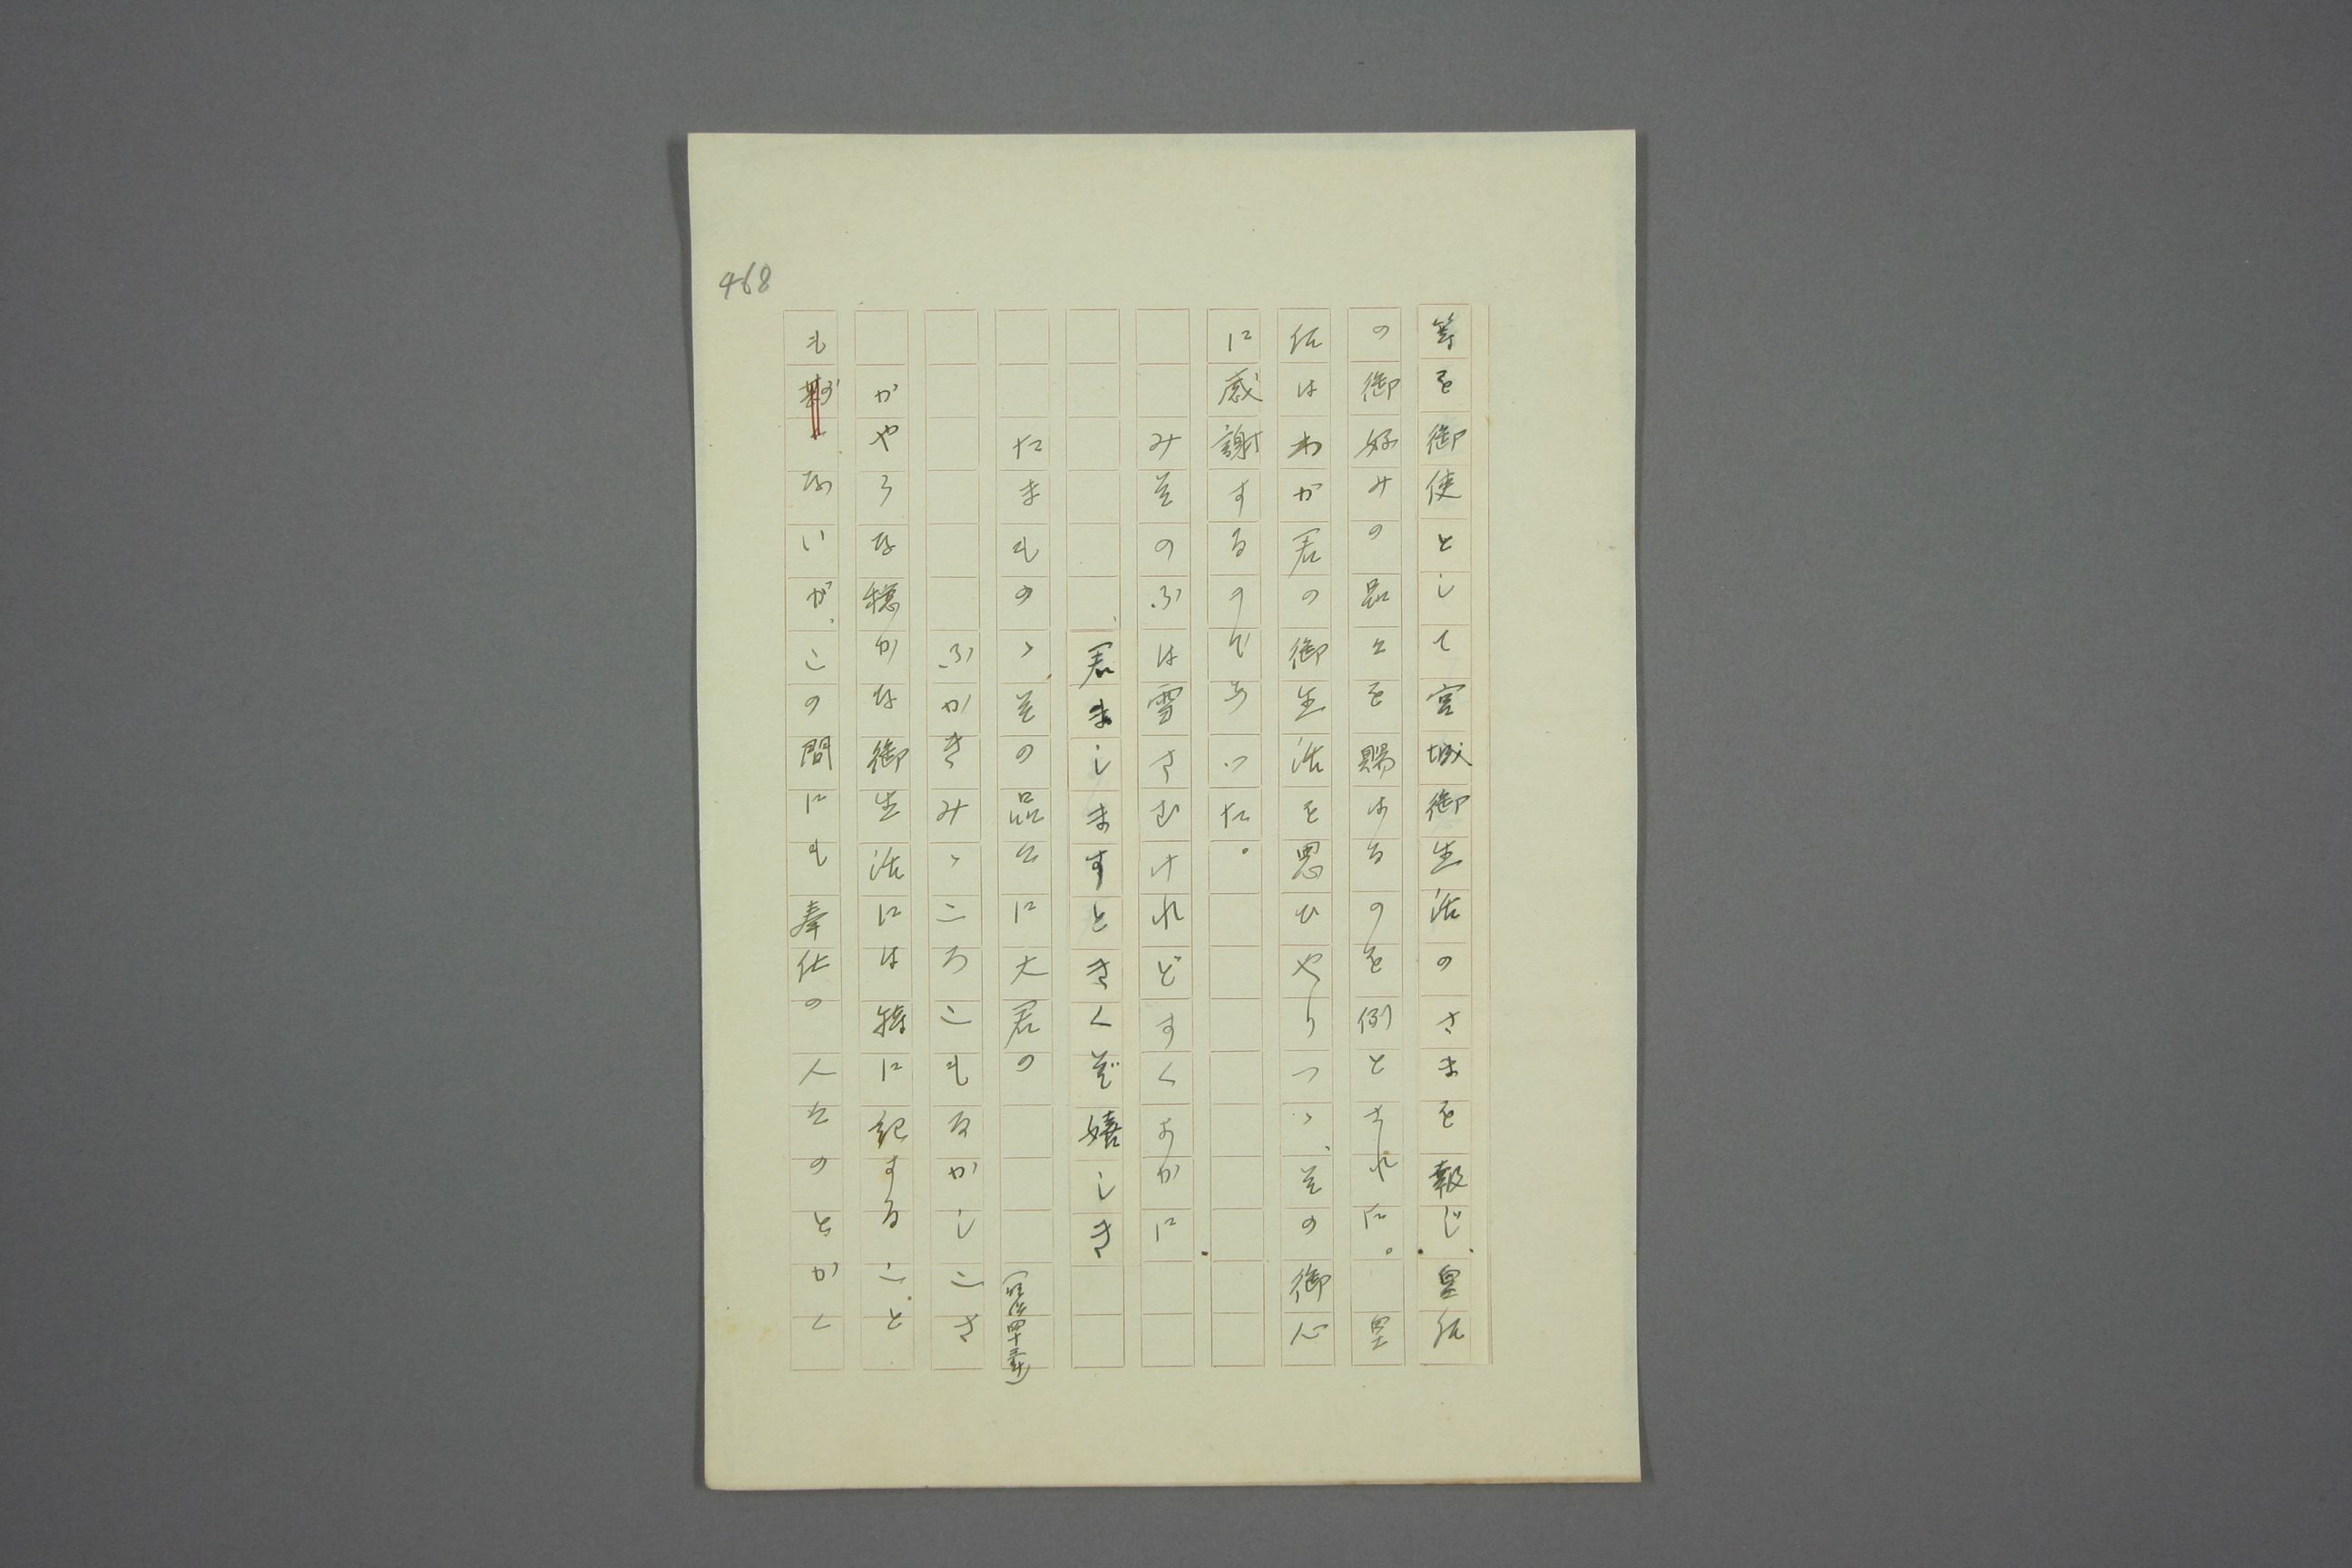 468
等を御使として宮城御生活のさまを報じ、皇后
の御好みの品々を賜はるのを例とされた。皇
后はわが君の御生活を思ひやりつゝ、その御心
に感謝するのであつた。
みそのふは雪さむけれどすくよかに
君ましますときくぞ嬉しき
たまものゝその品々に大君の(明治四十三年)
ふかきみこゝろこもるかしこさ
かやうな穏かな御生活には特に記すること
もないが、この間にも奉仕の人々のとかく